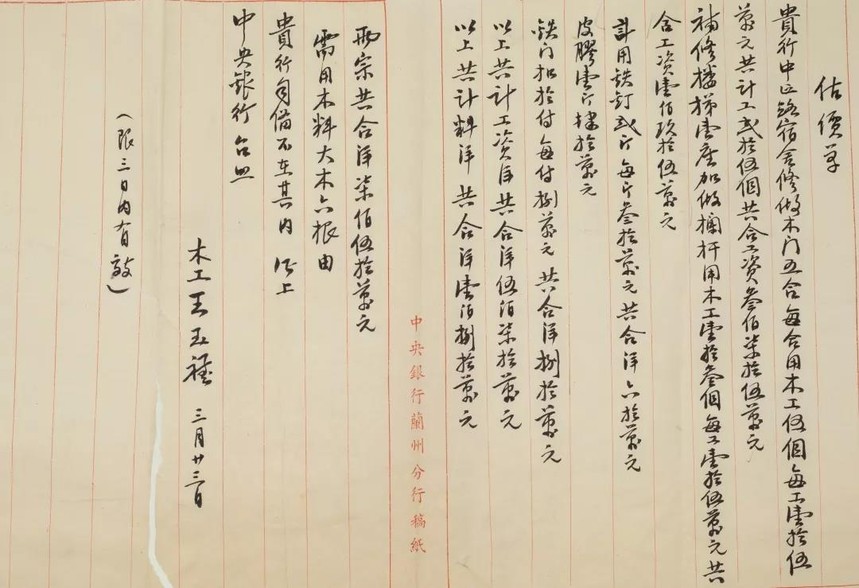 估價单
貴行中正路宿舍修做木门五合每合用木工伍個每工壹拾伍
萬元共计工弍拾伍個共合工资叁佰柒拾伍萬元
補修楼梯壹座加做欄杆用木工壹拾叁個每工壹拾伍萬元共
合工资壹佰玖拾伍萬元
計用铁钉弍斤每斤叁拾萬元共合洋六拾萬元
皮膠壹斤肆拾萬元
铁门扣拾付每付捌萬元共合洋捌拾萬元
以上共计工资洋共合洋伍佰柒拾萬元
以上共计料洋共合洋壹佰捌拾萬元
中央銀行蘭州分行稿紙
両宗共合洋柒佰伍拾萬元
需用木料大木六根由
貴行自備不在其内 上
中央銀行 台照
木工王五 三月廿三日
（限三日内有效）